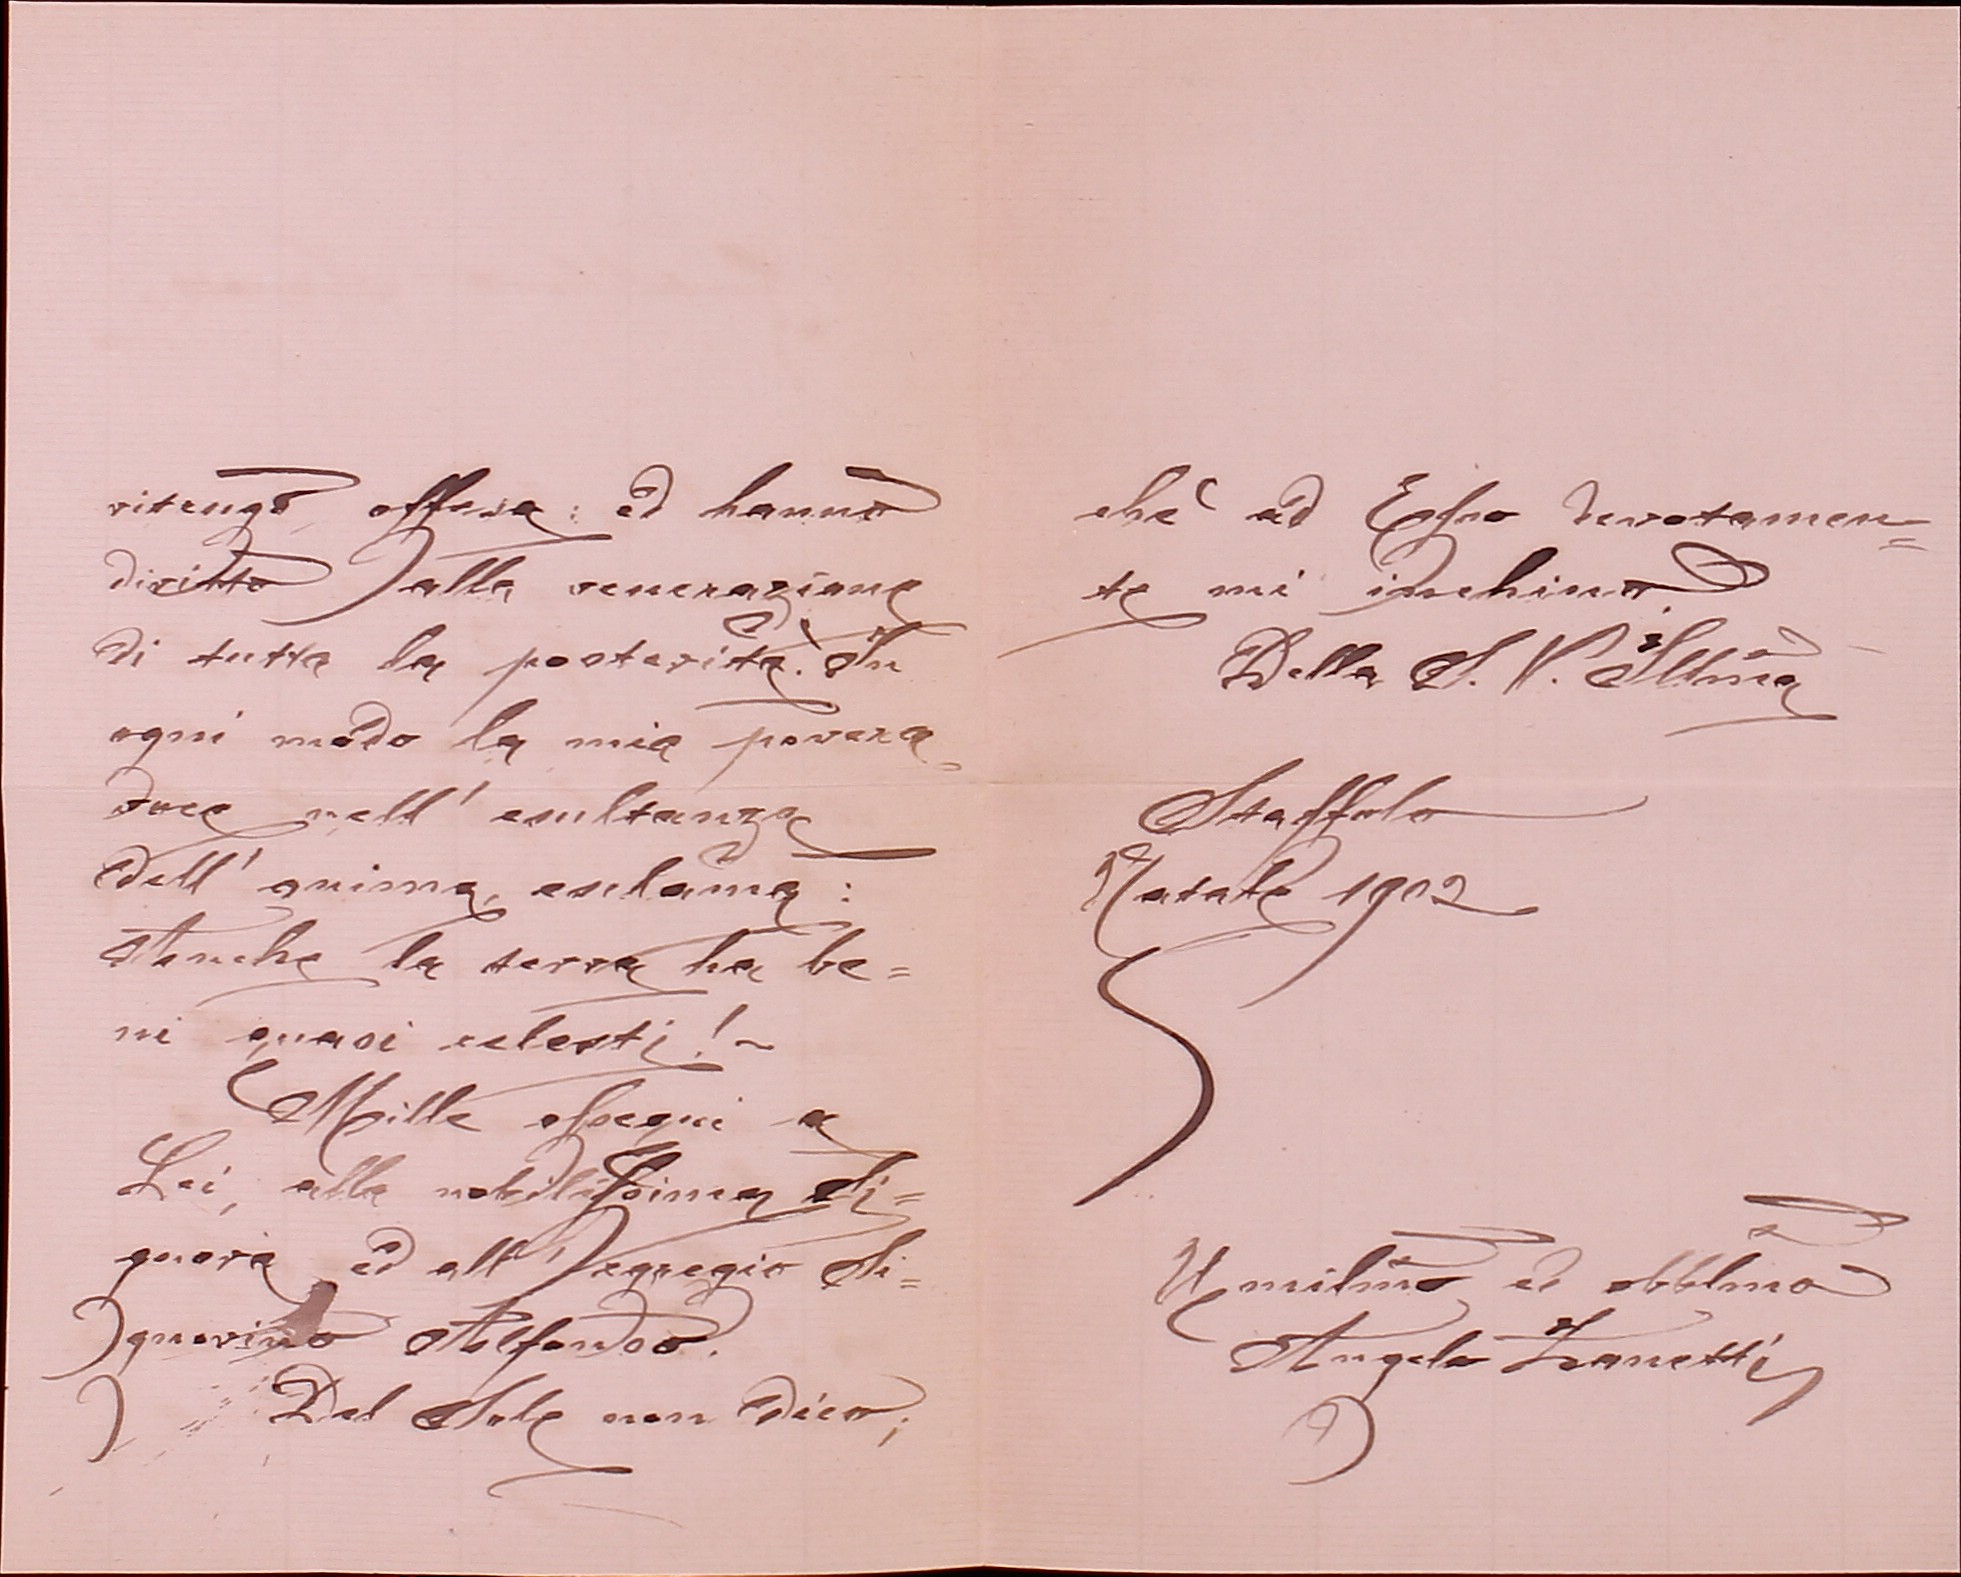 ritengo offesa: ed hanno
diritto alla venerazione
di tutta la posterità. In
ogni modo la mia povera
voce nell'esultanza
dell'anima, esclama:
Anche la terra ha be=
ni quasi celesti! ~
Mille ossequi a
Lei, alla nobilissima Si=
gnora ed all'egregio Si=
gnorino Alfonso.
Del Sole non dico;
chè ad Esso devotamen=
te mi inchino.
Della S. V. Illma
Staffolo
Natale 1902
Umilmo ed obblmo
Angelo Zanetti